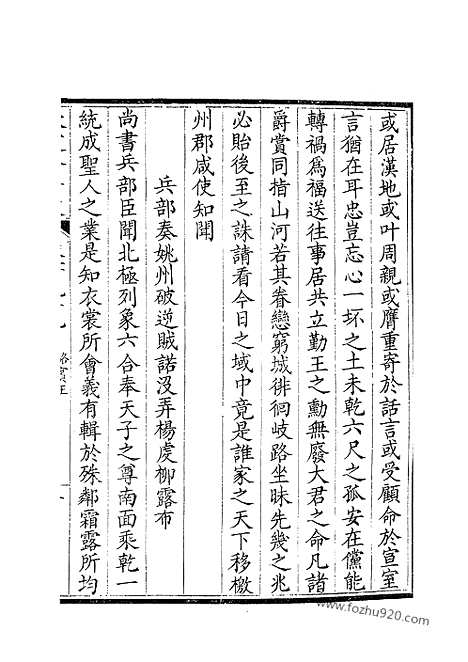 或居漢地或叶周親或膺重寄於話言或受顧命於宣室
言猶在耳忠豈忘心一坏之土未乾六尺之孤安在儻能
轉禍為福送往事居共立勤王之勳無廢大君之命凡諸
爵賞同指山河若其眷戀窮城徘徊岐路坐昧先幾之兆
必貽後至之誅請看今日之域中竟是誰家之天下移檄
州郡咸使知聞
兵部奏姚州破逆賊諾沒弄楊虔柳露布
尚書兵部臣聞北極列象六合奉天子之尊南面乘乾一
統成聖人之業是知衣裳所會義有輯於殊鄰霜露所均
駱賓王
www.fozhu920.com